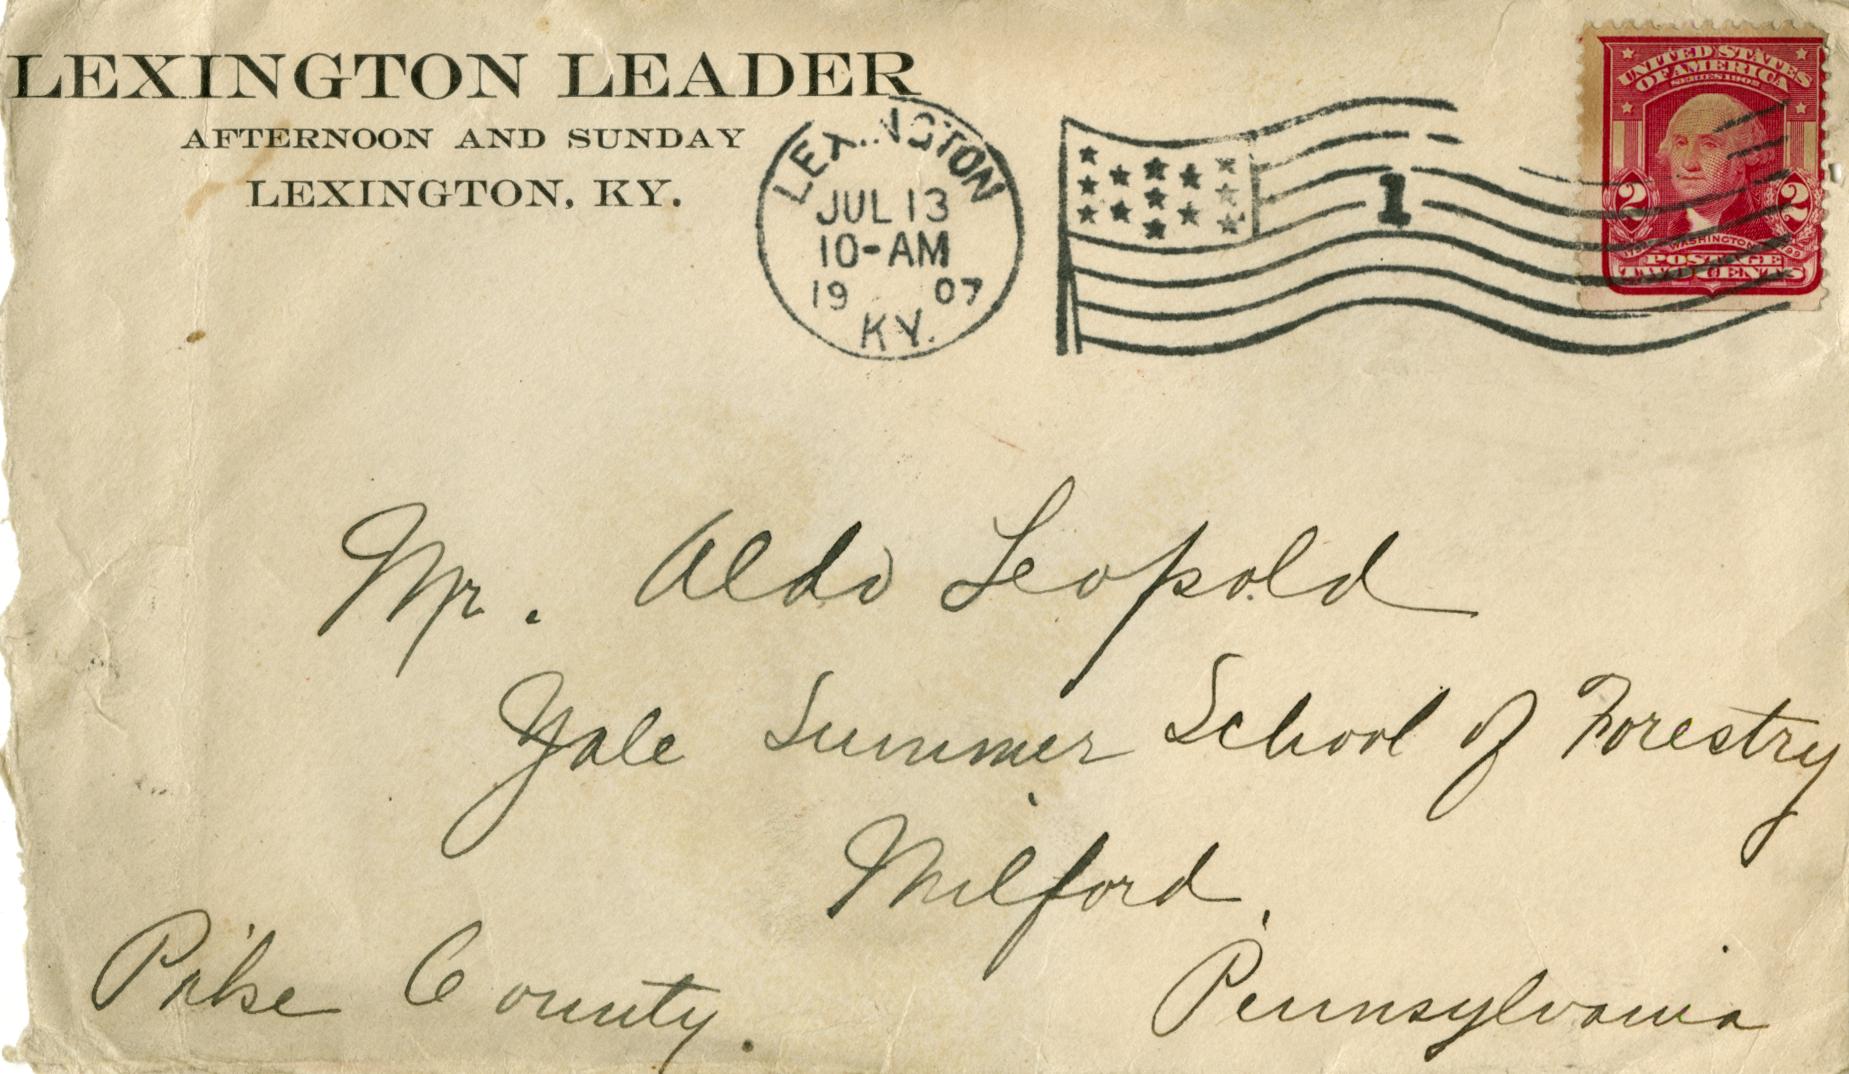 LEXINGTON LEADER
AFTERNOON AND SUNDAY
LEXINGTON, KY.
LEXINGTON
JUL 13
10-AM
19 07
KY.
1
UNITED STATES
OF AMERICA
SERIES 1902
2 2
WASHINGTON
POSTAGE
TWO CENTS
Mr. Aldo Leopold
Yale Summer School of Forestry
Milford,
Pike County.
Pennsylvania